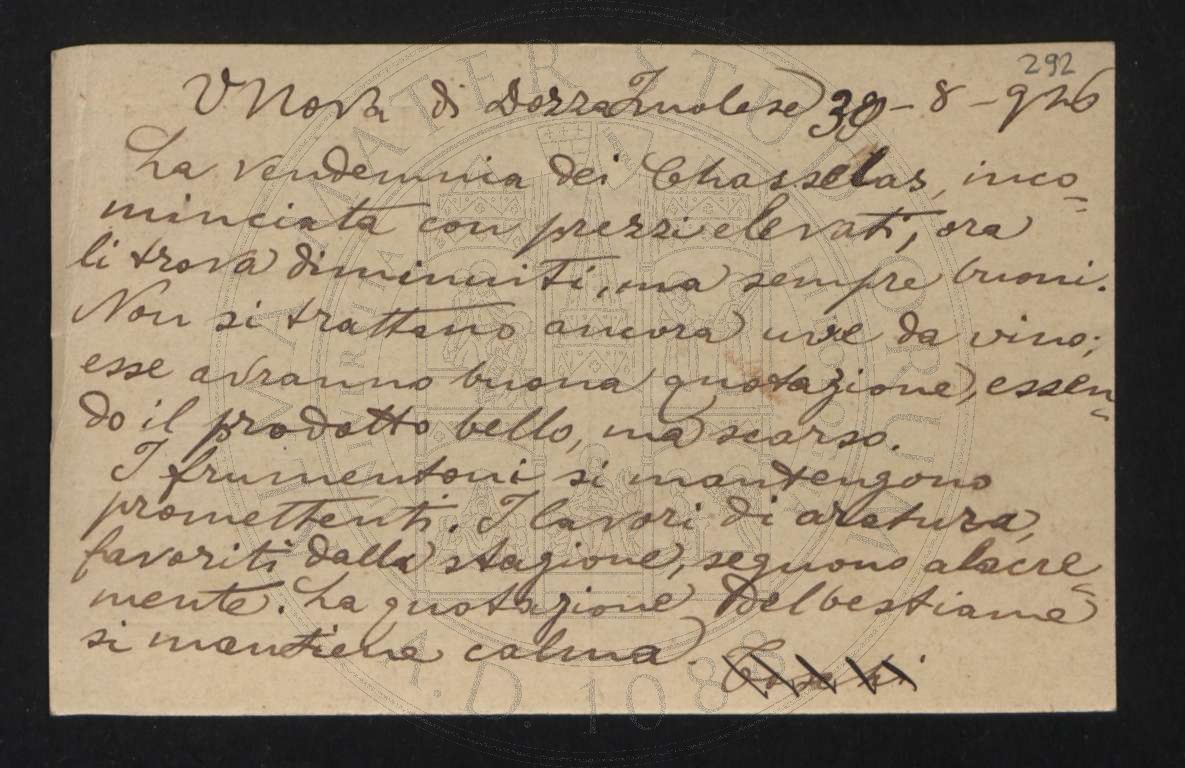 292
V Nova di Dozza Imolese 30-8-926
La vendemmia dei Chasselas, inco-
minciata con prezzi elevati, ora
li trova diminuiti, ma sempre buoni.
Non si trattano ancora uve da vino;
esse avranno buona quotazione, essen-
do il prodotto bello, ma scarso.
I frumentoni si mantengono
promettenti. I lavori di aratura,
favoriti dalla stagione, seguono alacre-
mente. La quotazione del bestiame
si mantiene calma.
ALMA MATER STUDIORUM
A.D. 1088